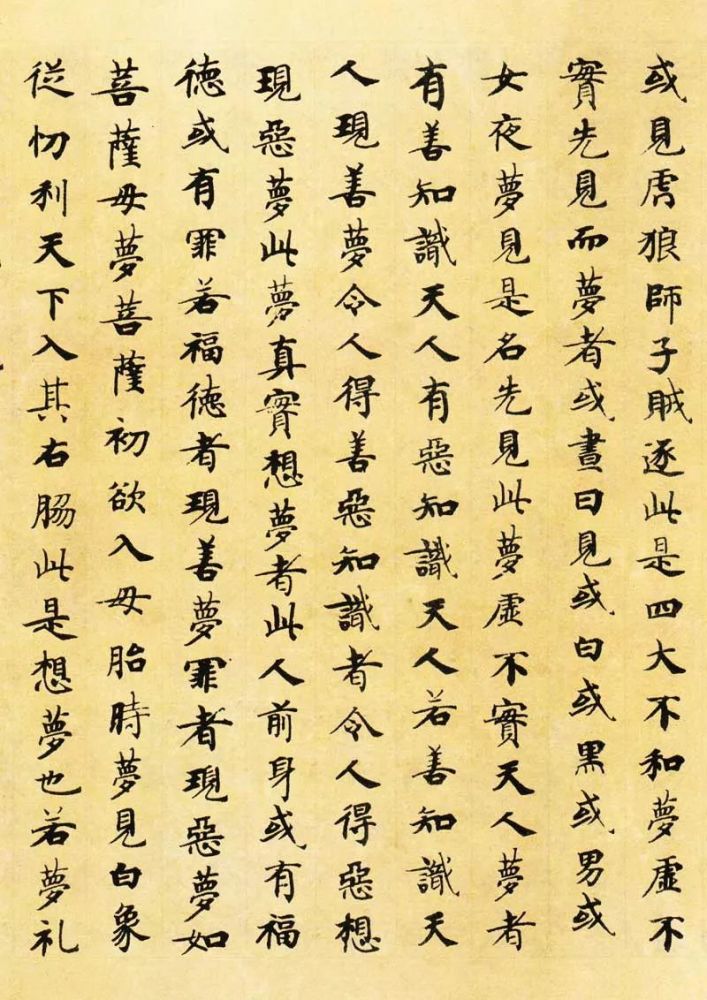 或見虎狼師子賊逐此是四大不和夢虛不
實先見而夢者或晝日見或白或黑或男或
女夜夢見是名先見此夢虛不實天人夢者
有善知識天人有惡知識天人若善知識天
人現善夢令人得善惡知識者令人得惡想
現惡夢此夢真實想夢者此人前身或有福
德或有罪若福德者現善夢罪者現惡夢如
菩薩母夢菩薩初欲入母胎時夢見白象
從忉利天下入其右脇此是想夢也若夢礼